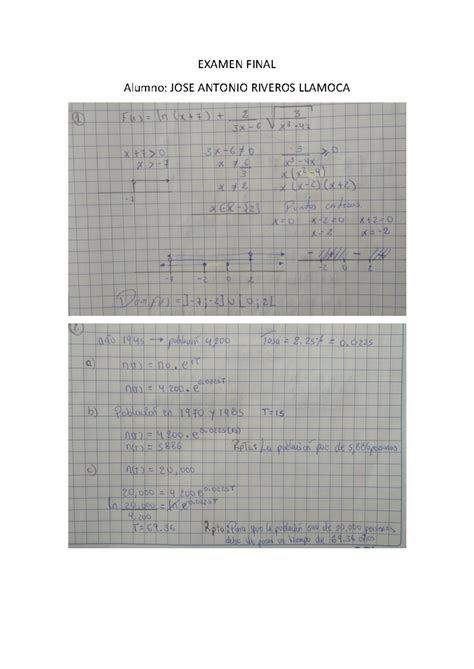 EXAMEN FINAL
Alumno: JOSE ANTONIO RIVEROS LLAMOCA
1) F(x) = ln (x+7) + 2/(3x-6) √(3/(x³-4x))
x+7>0 3x-6≠0 3/(x³-4x) ≥0
x>-7 x≠6/3 x(x²-4)
x≠2 x(x-2)(x+2)
x∈R-{2} Puntos críticos
x=0 x-2=0 x+2=0
x=2 x=-2
-7
-7 -2 0 2
-2 0 2
Dom f(x) = ]-7;-2] ∪ [0;2[
2)
año 1945 → población 4,200 Tasa = 2.25% = 0.0225
a) n(T) = no.e^rT
n(T) = 4,200.e^0.0225T
b) Población en 1970 y 1985 T=15
n(T) = 4,200.e^0.0225(15)
n(T) = 5886 Rpta: La población fue de 5,886 personas
c) n(T) = 20,000
20,000 = 4200 e^0.0225T
ln 20,000/4,200 = ln e^0.0225T
T=69.36 Rpta: Para que la población sea de 20,000 personas
debe de pasar un tiempo de : 69.36 años